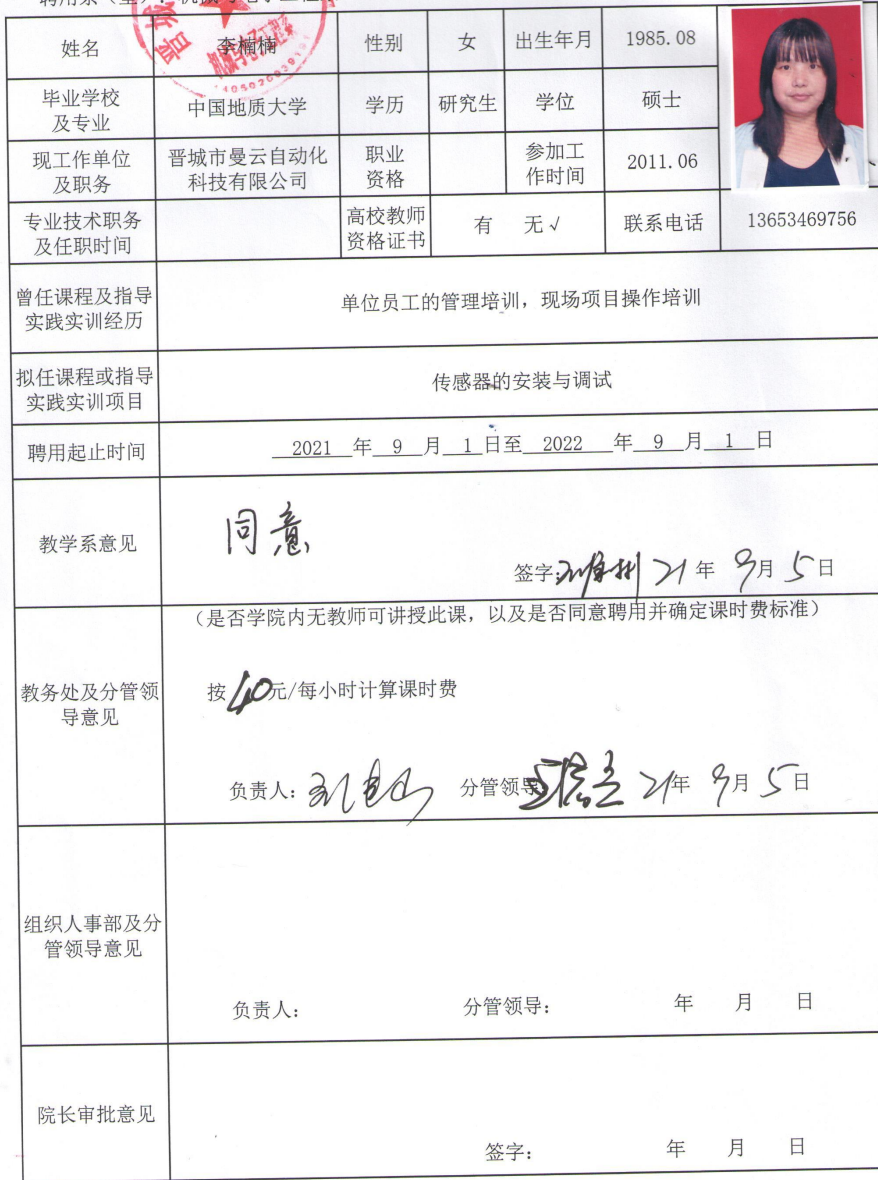 姓名 李楠楠 性别 女 出生年月 1985.08
毕业学校及专业 中国地质大学 学历 研究生 学位 硕士
现工作单位及职务 晋城市曼云自动化科技有限公司 职业资格 参加工作时间 2011.06
专业技术职务及任职时间 高校教师资格证书 有 无√ 联系电话 13653469756
曾任课程及指导实践实训经历 单位员工的管理培训，现场项目操作培训
拟任课程或指导实践实训项目 传感器的安装与调试
聘用起止时间 2021 年 9 月 1 日至 2022 年 9 月 1 日
教学系意见 同意
签字: 21 年 9月 5 日
(是否学院内无教师可讲授此课，以及是否同意聘用并确定课时费标准)
教务处及分管领导意见 按40元/每小时计算课时费
负责人: 分管领导: 21年 9月 5 日
组织人事部及分管领导意见
负责人: 分管领导: 年 月 日
院长审批意见
签字: 年 月 日